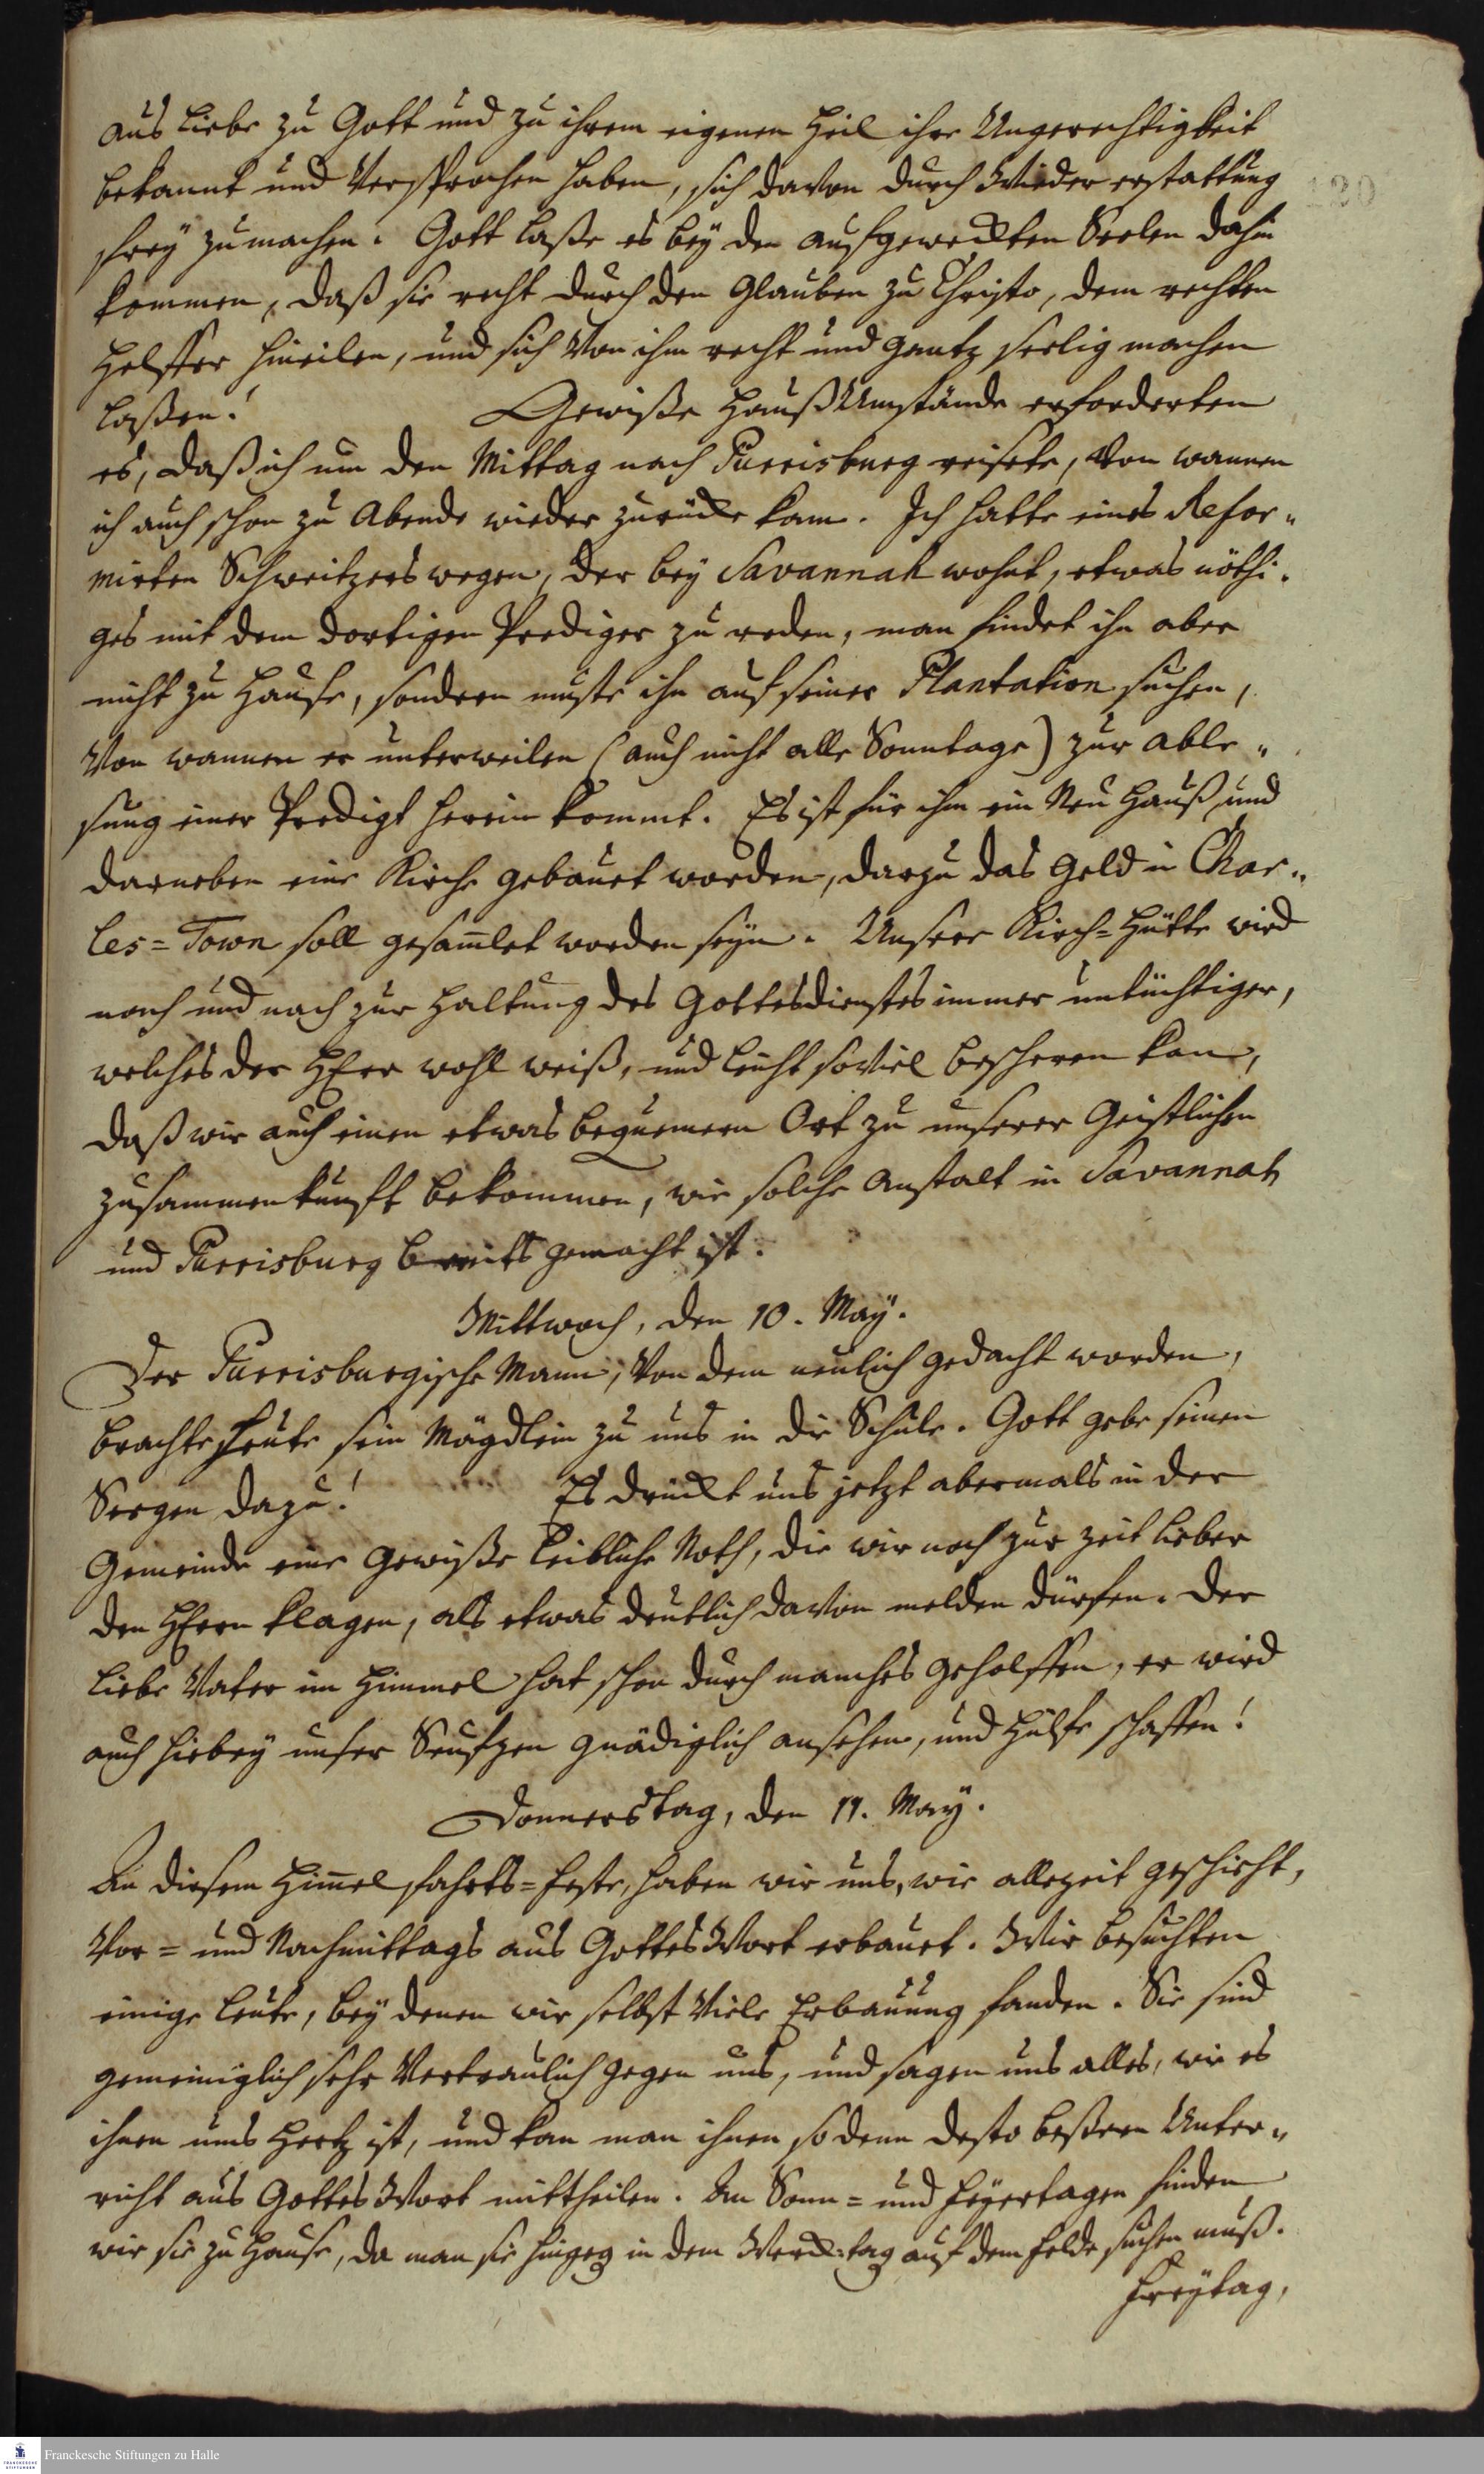 aus Liebe zu Gott und zu ihrem eigenen Heil ihre Ungerechtigkeit
bekannt und versprochen haben, sich davon durch Wiedererstattung
frey zu machen. Gott laße es bey den aufgeweckten Seelen dahin
kommen, daß sie recht durch den Glauben zu Christo, dem rechten
Helffer hineilen, und sich von ihm recht und gantz seelig machen
laßen! Gewiße Hauß Umstände erforderten
es, daß ich um den Mittag nach Purrisburg reisete, von wannen
ich auch schon zu Abende wieder zurücke kam. Ich hatte eines Refor-
mirten Schweitzers wegen, der bey Savannah wohnt, etwas nöthi-
ges mit dem dortigen Prediger zu reden, man findet ihn aber
nicht zu Hause, sondern muste ihn auf seiner Plantation suchen,
von wannen er unterweilen (auch nicht alle Sonntage) zur Able-
sung einer Predigt herein kommt. Es ist für ihm ein Neu Hauß, und
darneben eine Kirche gebauet worden, darzu das Geld in Char-
les=Town soll gesam̅let worden seyn. Unsere Kirch=Hütte wird
nach und nach zur Haltung des Gottesdienstes immer untüchtiger,
welches der HErr wohl weiß, und leicht soviel bescheren kan,
daß wir auch einen etwas bequemern Ort zu unserer Geistlichen
Zusammenkunft bekommen, wie solche Anstalt in Savannah
und Purrisburg bereits gemacht ist.
Mittwoch, den 10. May.
Der Purrisburgische Mann, von dem neulich gedacht worden,
brachte heute sein Mägdlein zu uns in die Schule. Gott gebe seinen
Seegen dazu! Es drückt uns jetzt abermals in der
Gemeinde eine gewiße leibliche Noth, die wir noch zur Zeit lieber
den HErrn klagen, als etwas deutlich davon melden dürfen. Der
liebe Vater im Himmel hat schon durch manches geholffen, er wird
auch hiebey unser Seufzen gnädiglich ansehen, und Hülfe schaffen!
Donnerstag, den 11. May.
An diesem Him̅elfahrts=Feste, haben wir uns, wie allezeit geschieht,
Vor= und Nachmittags aus Gottes Wort erbauet. Wir besuchten
einige Leute, bey denen wir selbst viele Erbauung fanden. Sie sind
gemeiniglich sehr vertraulich gegen uns, und sagen uns alles, wie es
ihnen ums Hertz ist, und kan man ihnen sodenn desto beßern Unter-
richt aus Gottes Wort mittheilen. An Sonn= und Feyertagen finden
wir sie zu Hause, da man sie hingeg in dem Werck-tag auf dem Felde suchen muß.
Freytag,
130
Franckesche Stiftungen zu Halle